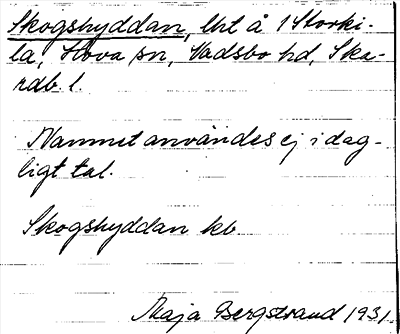 Skogshyddan, lht å 1 Storki-
la, Hova sn, Vadsbo hd, Ska-
rdb. l.
Namnet användes ej i dag-
ligt tal.
Skogshyddan kb.
Maja Bergstrand 1931.